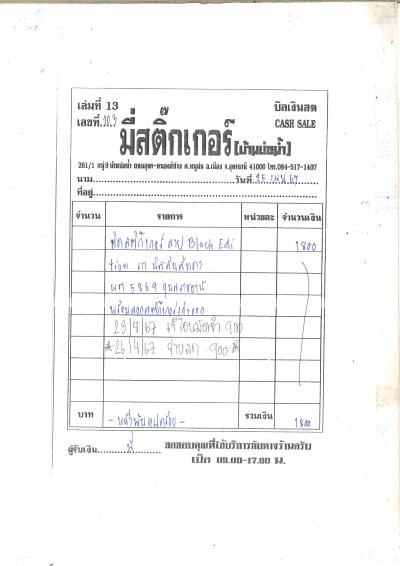 เล่มที่ 13 บิลเงินสด
เลขที่ CASH SALE
มี่สติ๊กเกอร์ [บ้านบ่อน้ำ]
261/1 หมู่ 9 บ้านบ่อน้ำ ถนนอุดร-หนองสำโรง ต.หมูม่น อ.เมือง จ.อุดรธานี 41000 โทร.084-517-1407
นาม วันที่ 25 เม.ย. 67
ที่อยู่
จำนวน รายการ หน่วยละ จำนวนเงิน
ติดสติ๊กเกอร์ ลาย Black Edi 1800
tion รถ
5869 อุบลราชธานี
พร้อมลอกสติ๊กเกอร์
23/4/67 โอนมัดจำ 900
*26/4/67 จ่ายสด 900*
บาท -หนึ่งพันแปดร้อย- รวมเงิน 1800
ผู้รับเงิน มี่ ขอขอบคุณที่ใช้บริการกับทางร้านครับ
เปิด 09.00-17.00 น.